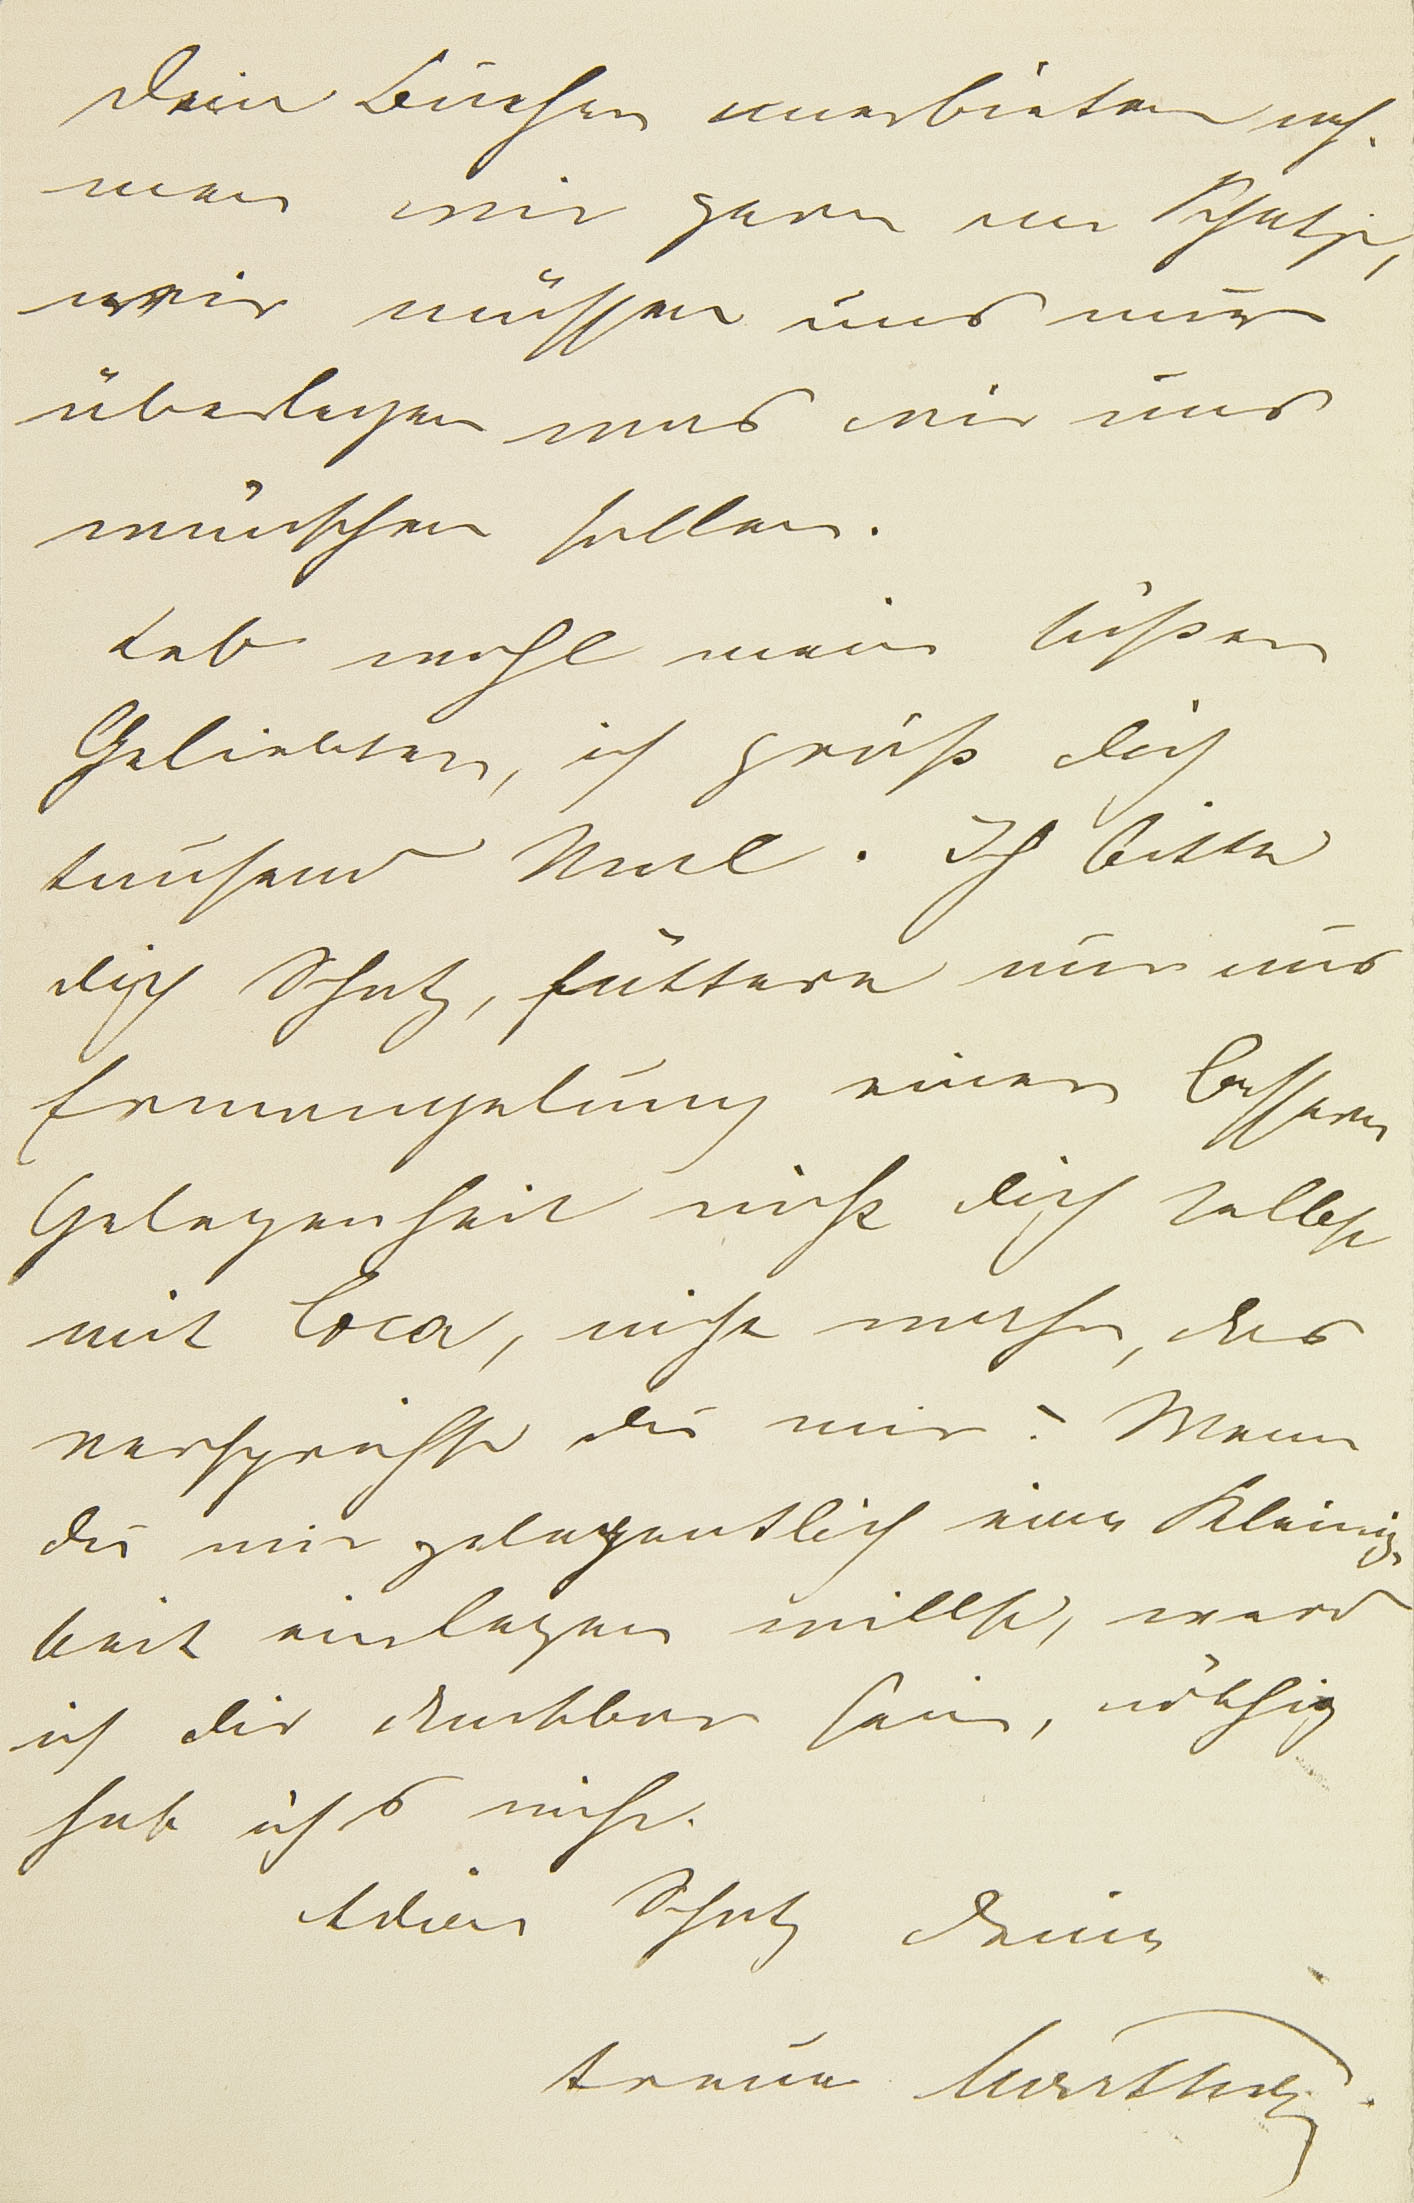 Dein Bücher anerbieten neh-
men wir gern an Schatz,
wir müssen uns nur
überlegen was wir uns
wünschen sollen.
Leb wohl mein süßer
Geliebter, ich grüß dich
tausend Mal. Ich bitte
dich Schatz, füttere nur aus
Ermangelung einer bessern
Gelegenheit nicht dich selbst
mit Coca, nicht wahr, das
versprichst du mir? Wenn
du mir gelegentlich eine Kleinig-
keit einlegen willst, werd
ich dir dankbar sein, nöthig
hab ichs nicht.
Adieu Schatz Deine
treue Marthe.